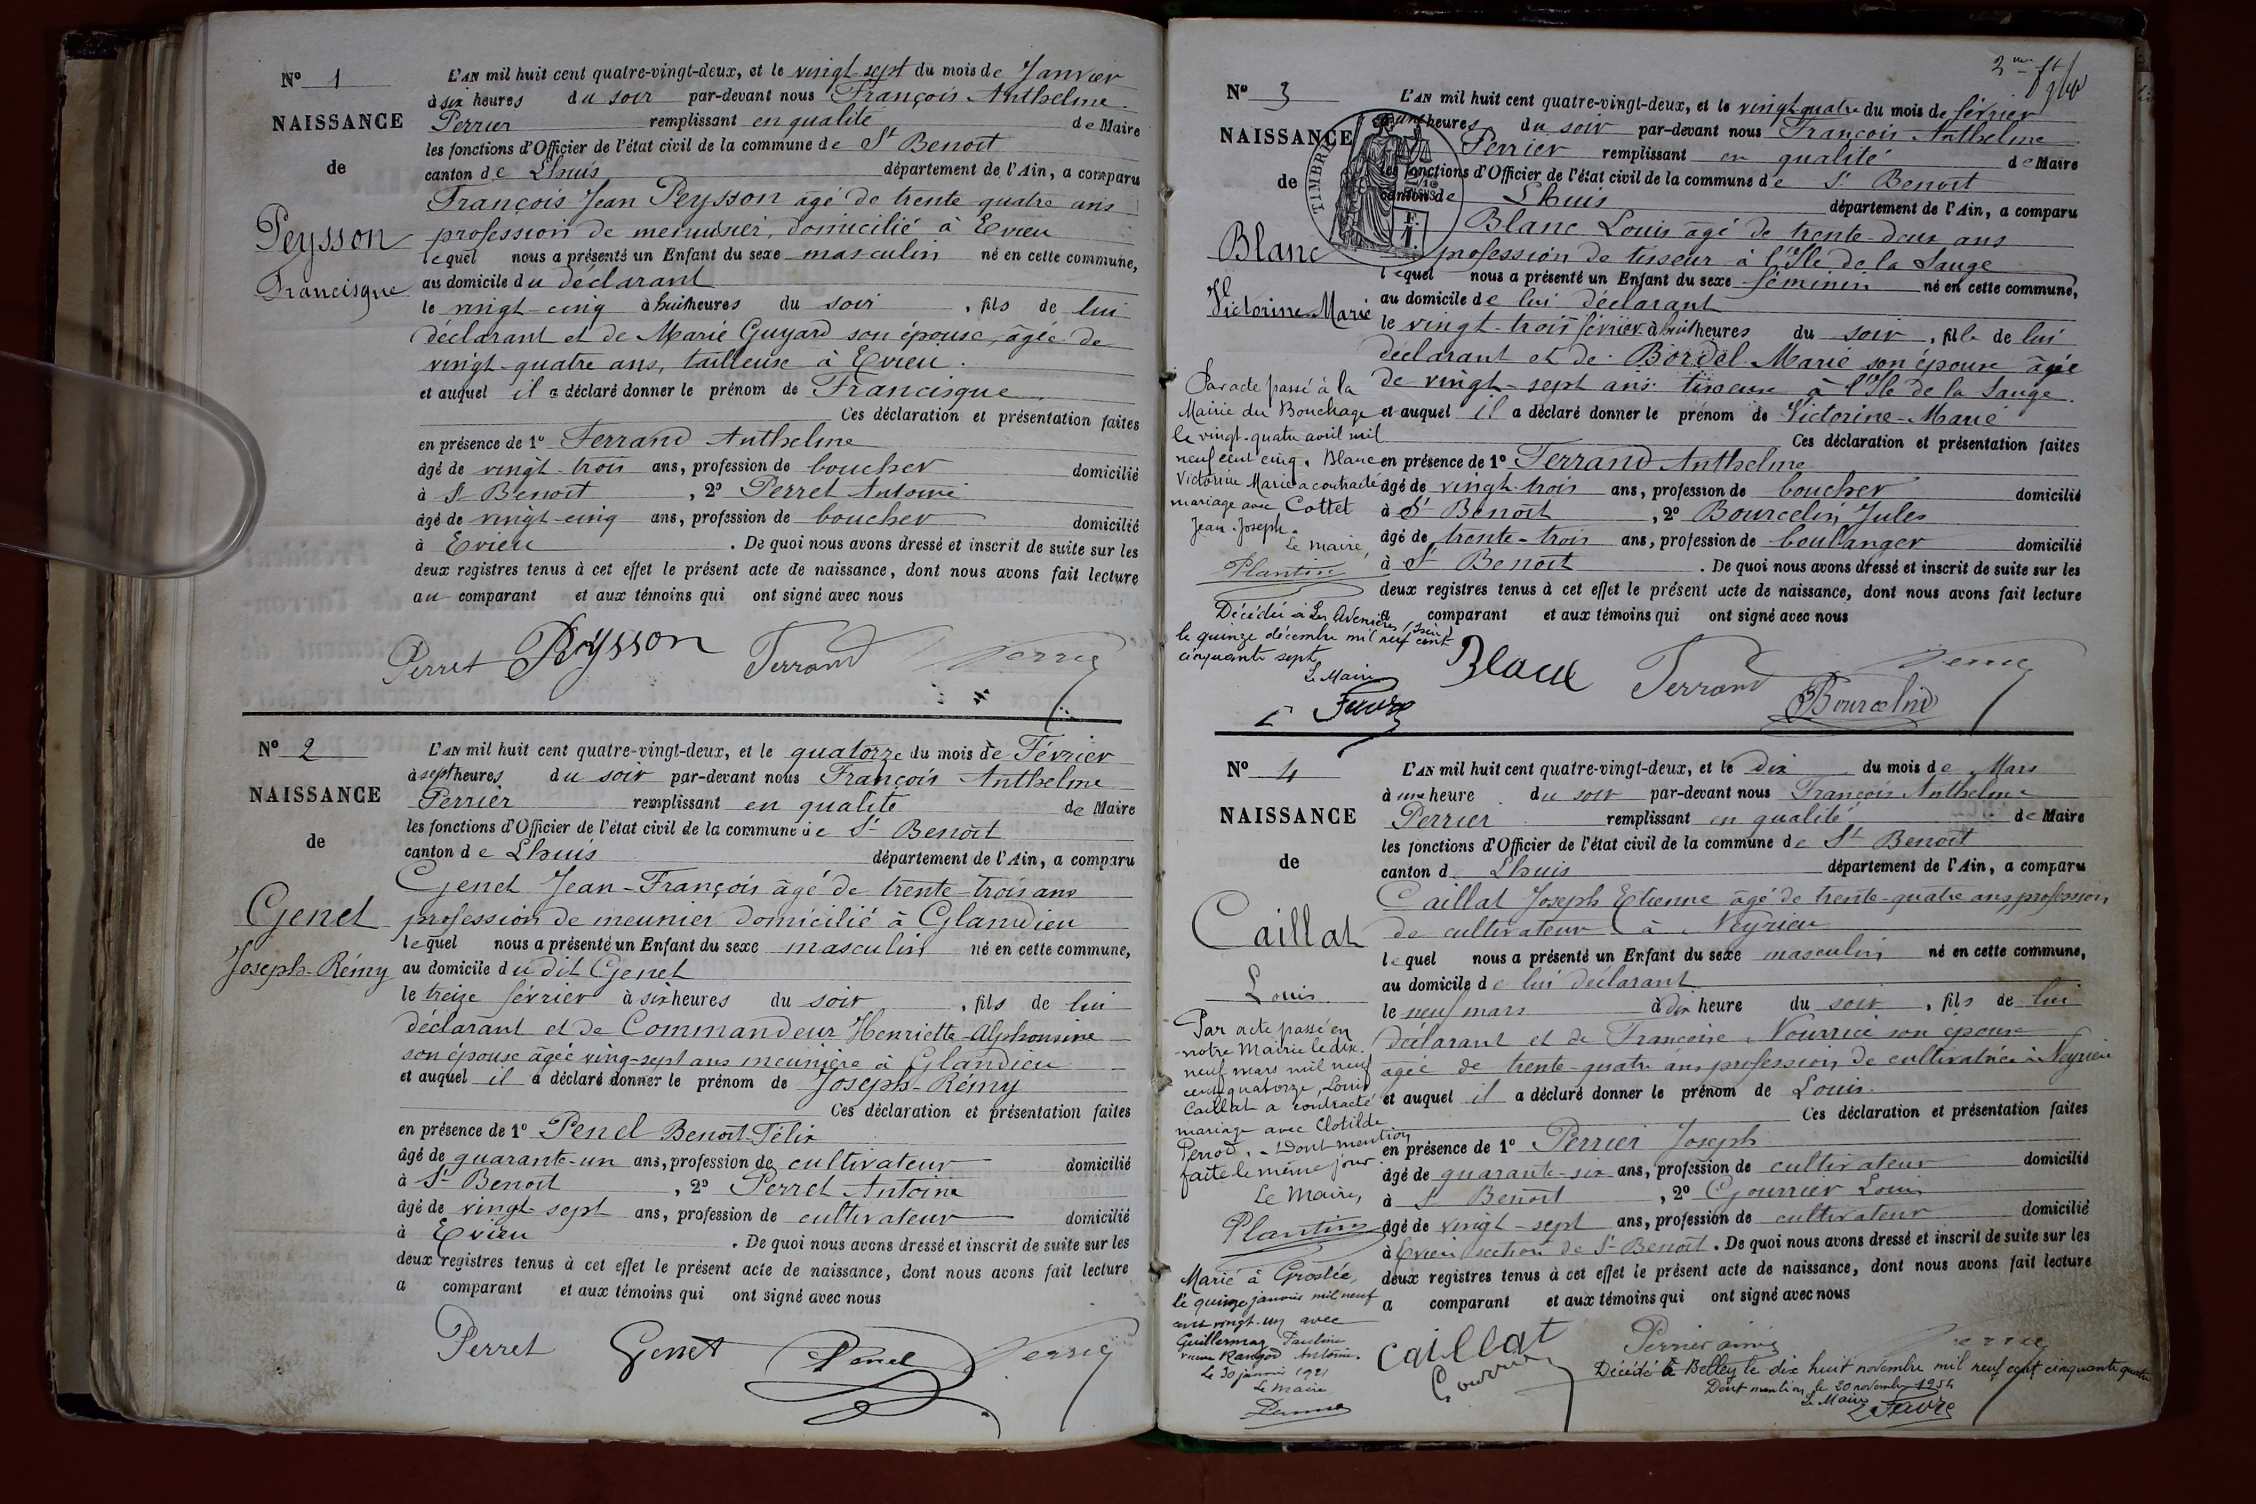 N° 1
NAISSANCE
de
Peysson
Francisque
L'AN mil huit cent quatre-vingt-deux, et le vingt-sept du mois de Janvier
à six heures du soir par-devant nous François Anthelme
Perrier remplissant en qualité de Maire
les fonctions d'Officier de l'état civil de la commune de St Benoit
canton de Lhuis département de l'Ain, a comparu
François Jean Peysson agé de trente quatre ans
profession de menuisier, domicilié à Evieu
lequel nous a présenté un Enfant du sexe masculin né en cette commune,
au domicile du déclarant
le vingt-cinq à huit heures du soir, fils de lui
déclarant et de Marie Guyard son épouse, âgée de
vingt-quatre ans, tailleuse à Evieu.
et auquel il a déclaré donner le prénom de Francisque
Ces déclaration et présentation faites
en présence de 1° Ferrand Anthelme
âgé de vingt-trois ans, profession de boucher domicilié
à St Benoit, 2° Perret Antoine
âgé de vingt-cinq ans, profession de boucher domicilié
à Evieu. De quoi nous avons dressé et inscrit de suite sur les
deux registres tenus à cet effet le présent acte de naissance, dont nous avons fait lecture
au comparant et aux témoins qui ont signé avec nous
Perret Peysson Ferrand Perrier
N° 2
NAISSANCE
de
Genet
Joseph-Rémy
L'AN mil huit cent quatre-vingt-deux, et le quatorze du mois de Février
à sept heures du soir par-devant nous François Anthelme
Perrier remplissant en qualité de Maire
les fonctions d'Officier de l'état civil de la commune de St Benoit
canton de Lhuis département de l'Ain, a comparu
Genet Jean-François âgé de trente-trois ans
profession de meunier domicilié à Glandieu
lequel nous a présenté un Enfant du sexe masculin né en cette commune,
au domicile dudit Genet
le treize février à six heures du soir, fils de lui
déclarant et de Commandeur Henriette-Alphonsine
son épouse âgée ving-sept ans meunière à Glandieu
et auquel il a déclaré donner le prénom de Joseph-Rémy
Ces déclaration et présentation faites
en présence de 1° Penel Benoit-Félix
âgé de quarante-un ans, profession de cultivateur domicilié
à St Benoit, 2° Perret Antoine
âgé de vingt-sept ans, profession de cultivateur domicilié
à Evieu. De quoi nous avons dressé et inscrit de suite sur les
deux registres tenus à cet effet le présent acte de naissance, dont nous avons fait lecture
a comparant et aux témoins qui ont signé avec nous
Perret Genet Penel Perrier
N° 3
NAISSANCE
de
Blanc
Victorine-Marie
TIMBRE
L'AN mil huit cent quatre-vingt-deux, et le vingt-quatre du mois de février
heures du soir par-devant nous François Anthelme
Perrier remplissant en qualité de Maire
les fonctions d'Officier de l'état civil de la commune de St Benoit
canton de Lhuis département de l'Ain, a comparu
Blanc Louis âgé de trente-deux ans
profession de tisseur à l'Isle de la Sauge
lequel nous a présenté un Enfant du sexe féminin né en cette commune,
au domicile de lui déclarant
le vingt-trois février à huit heures du soir, fille de lui
déclarant et de Bordel Marie son épouse âgée
de vingt-sept ans tisseuse à l'Isle de la Sauge.
et auquel il a déclaré donner le prénom de Victorine-Marie
Ces déclaration et présentation faites
en présence de 1° Ferrand Anthelme
âgé de vingt-trois ans, profession de boucher domicilié
à St Benoit, 2° Bourcelin Jules
âgé de trente-trois ans, profession de boulanger domicilié
à St Benoit. De quoi nous avons dressé et inscrit de suite sur les
deux registres tenus à cet effet le présent acte de naissance, dont nous avons fait lecture
a comparant et aux témoins qui ont signé avec nous
Blanc Ferrand Bourcelin Perrier
Par acte passé à la
Mairie du Bouchage
le vingt-quatre avril mil
neuf cent cinq, Blanc
Victorine Marie a contracté
mariage avec Cottet
Jean-Joseph.
Le maire,
Plantin
Décédée à Les Avenières (Isère)
le quinze décembre mil neuf cent
cinquante sept
Le Maire
Favre
N° 4
NAISSANCE
de
Caillat
Louis
L'AN mil huit cent quatre-vingt-deux, et le dix du mois de Mars
à une heure du soir par-devant nous François Anthelme
Perrier remplissant en qualité de Maire
les fonctions d'Officier de l'état civil de la commune de St Benoit
canton d Lhuis département de l'Ain, a comparu
Caillat Joseph Etienne âgé de trente-quatre ans profession
de cultivateur à Neyrieu
lequel nous a présenté un Enfant du sexe masculin né en cette commune,
au domicile de lui déclarant
le neuf mars à dix heure du soir, fils de lui
déclarant et de Françoise Nourrice son épouse
agée de trente-quatre ans profession de cultivatrice à Neyrieu
et auquel il a déclaré donner le prénom de Louis.
Ces déclaration et présentation faites
en présence de 1° Perrier Joseph
âgé de quarante-six ans, profession de cultivateur domicilié
à St Benoit, 2° Gourrier Louis
âgé de vingt-sept ans, profession de cultivateur domicilié
à Evieu section de St Benoit. De quoi nous avons dressé et inscrit de suite sur les
deux registres tenus à cet effet le présent acte de naissance, dont nous avons fait lecture
a comparant et aux témoins qui ont signé avec nous
Caillat Perrier Perrier
Gourrier
Décédé à Belley le dix huit novembre mil neuf cent cinquante quatre
Dont mention le 20 novembre 1954
Le Maire
Favre
Par acte passé en
notre Mairie le dix
neuf mars mil neuf
cent quatorze, Louis
Caillat a contracté
mariage avec Clotilde
Penod. - Dont mention
faite le même jour.
Le Maire,
Plantin
Marié à Groslée,
le quinze janvier mil neuf
cent vingt-un avec
Guillermaz Pauline
veuve Rangod Antoine.
Le 30 janvier 1921
Le Maire